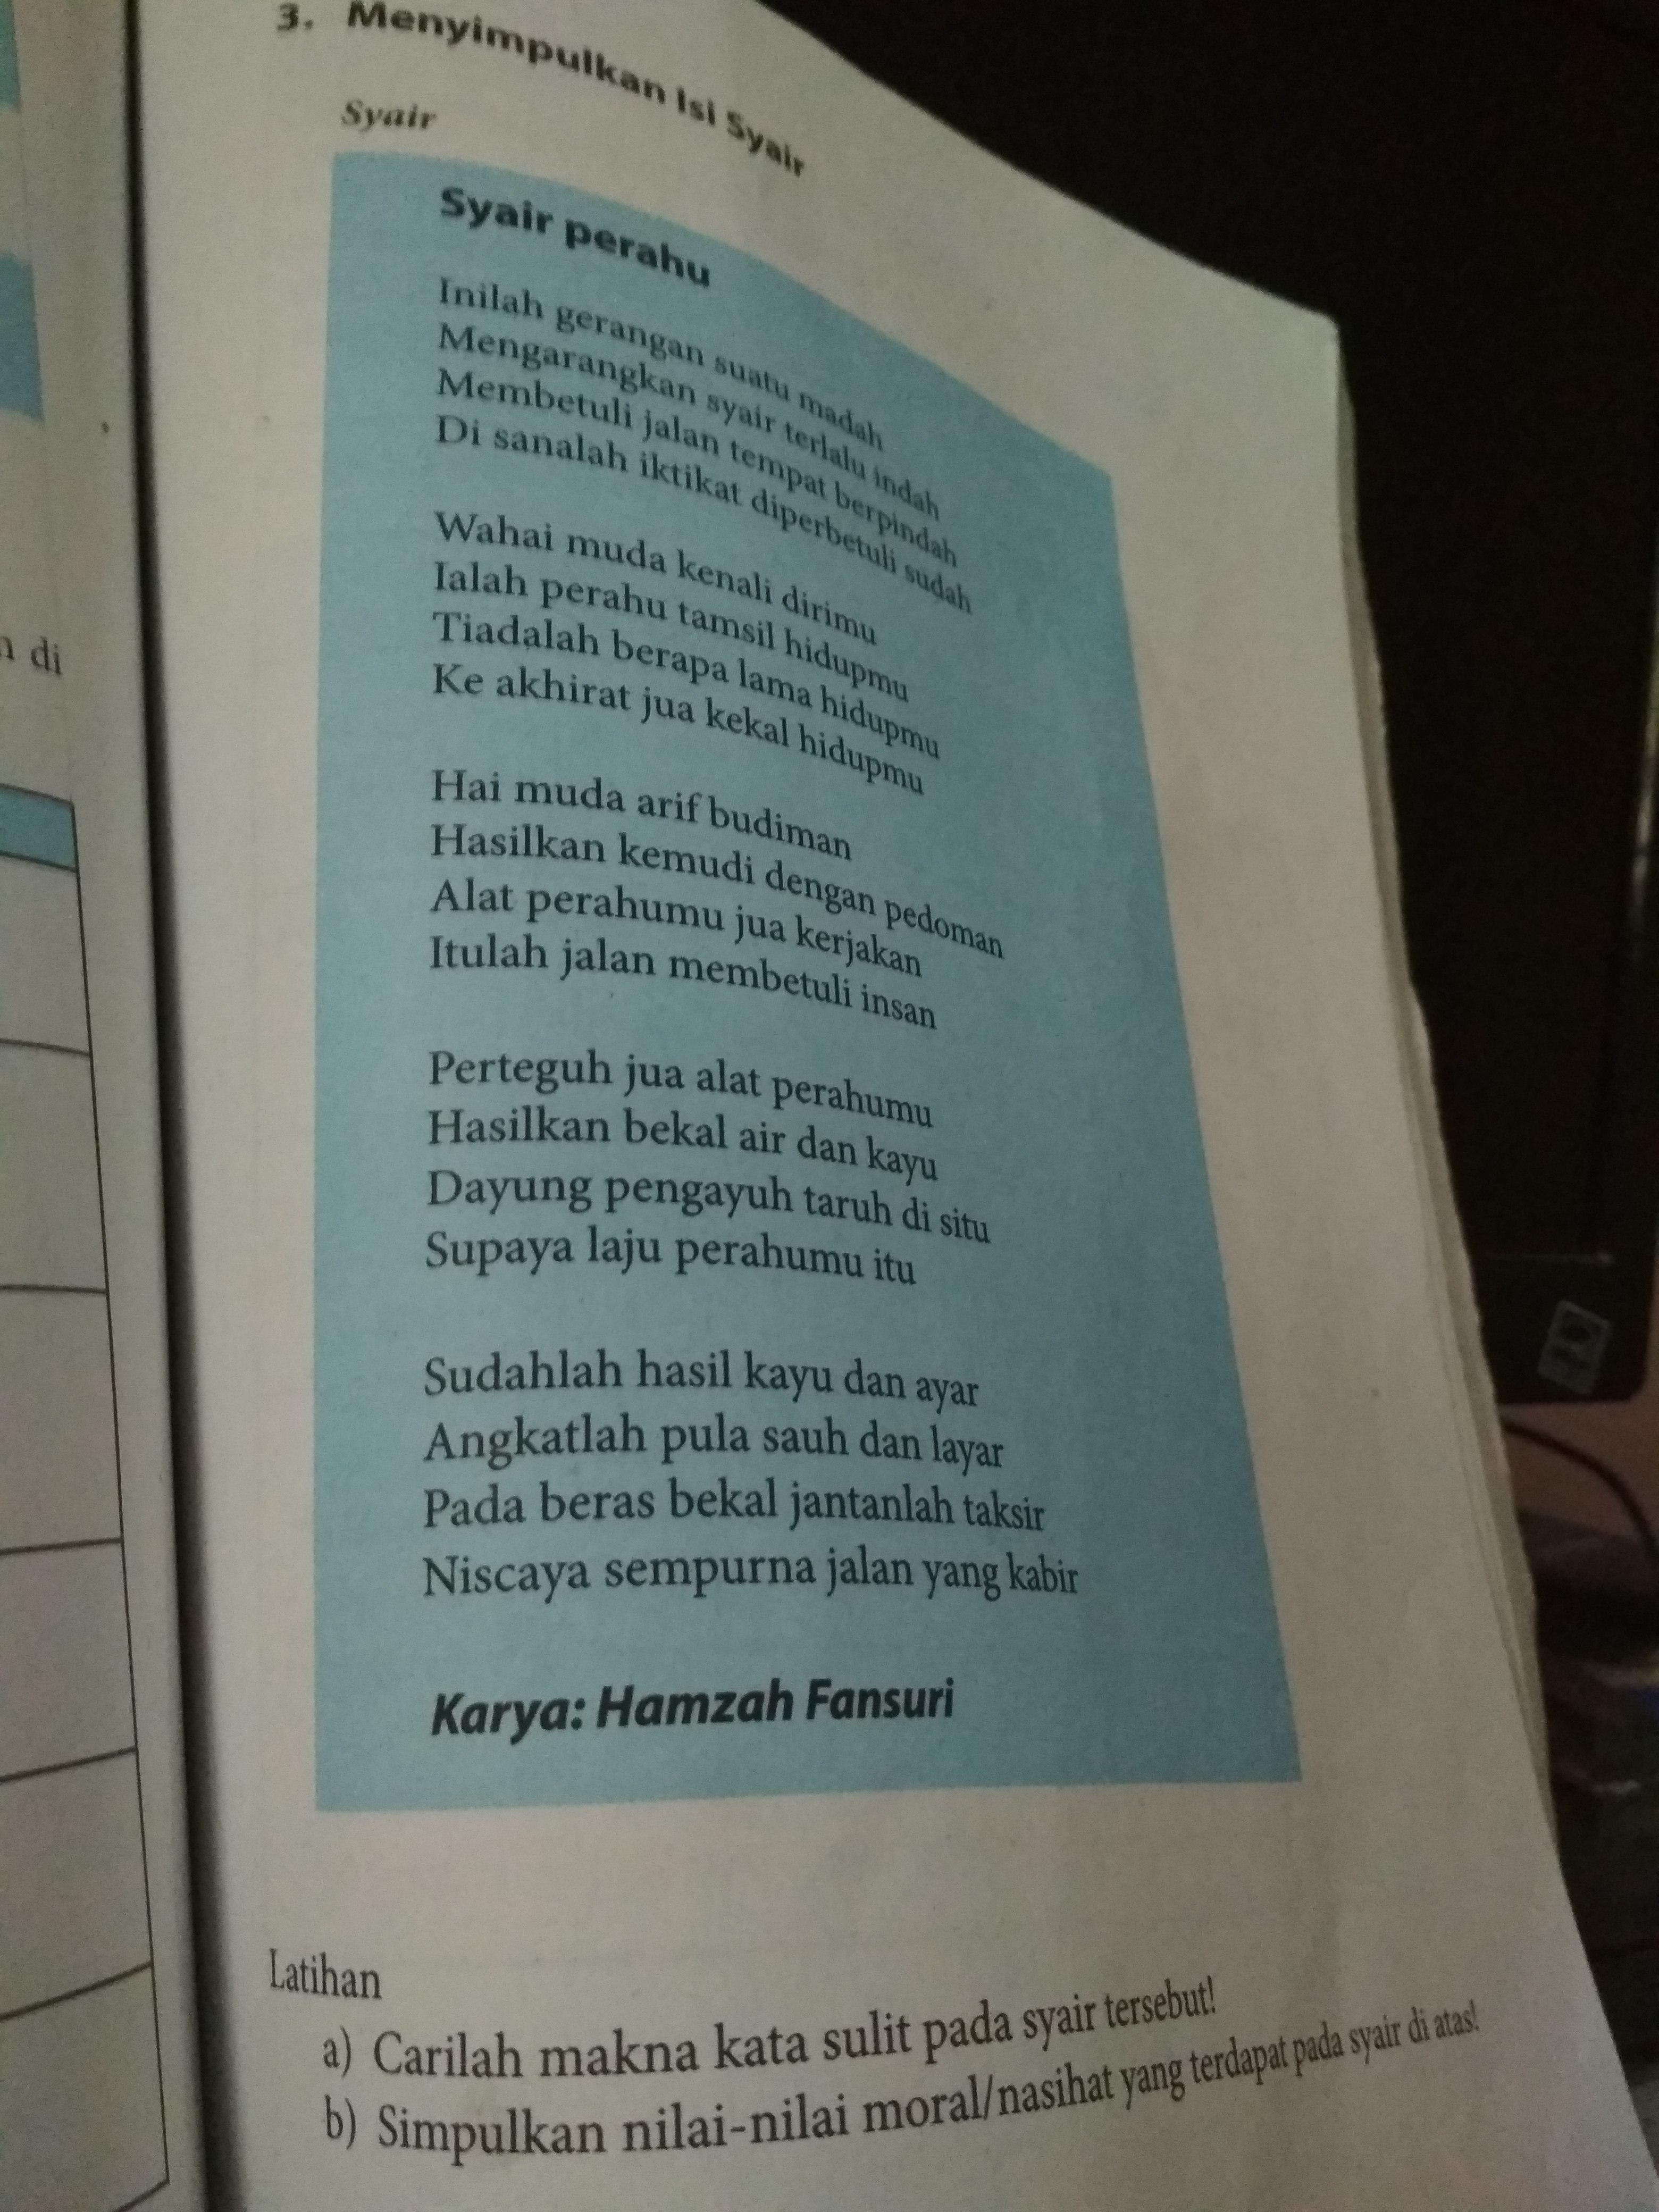 n di
3. Menyimpulkan Isi Syair
Syair
Syair perahu
Inilah gerangan suatu madah
Mengarangkan syair terlalu indah
Membetuli jalan tempat berpindah
Di sanalah iktikat diperbetuli sudah
Wahai muda kenali dirimu
Ialah perahu tamsil hidupmu
Tiadalah berapa lama hidupmu
Ke akhirat jua kekal hidupmu
Hai muda arif budiman
Hasilkan kemudi dengan pedoman
Alat perahumu jua kerjakan
Itulah jalan membetuli insan
Perteguh jua alat perahumu
Hasilkan bekal air dan kayu
Dayung pengayuh taruh di situ
Supaya laju perahumu itu
Sudahlah hasil kayu dan ayar
Angkatlah pula sauh dan layar
Pada beras bekal jantanlah taksir
Niscaya sempurna jalan yang kabir
Karya: Hamzah Fansuri
Latihan
a) Carilah makna kata sulit pada syair tersebut!
b) Simpulkan nilai-nilai moral/nasihat yang terdapat pada syair di atas!